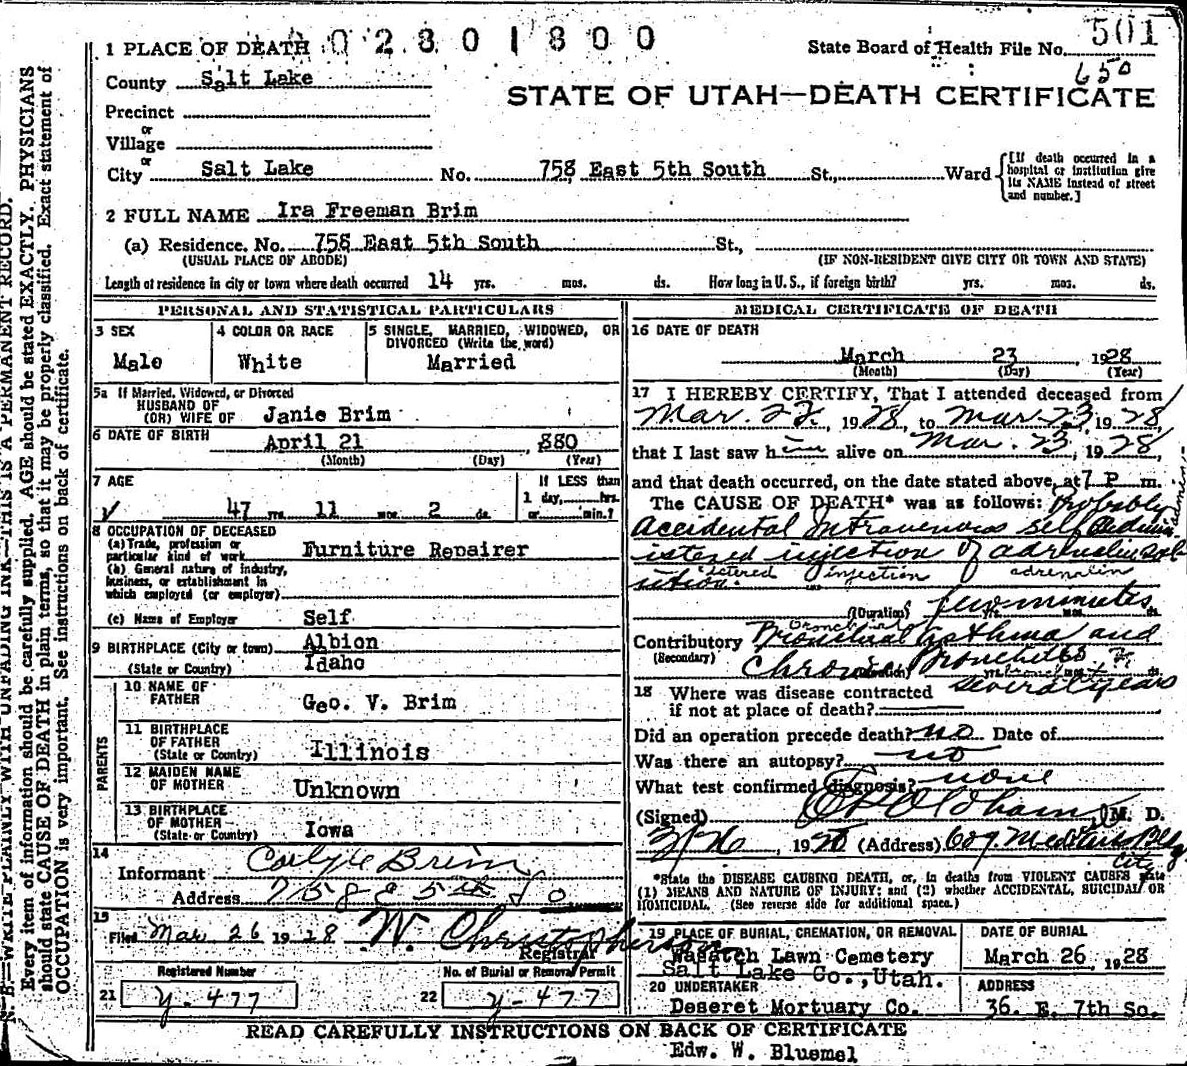 0 2 8 0 1 8 0 0
501
1 PLACE OF DEATH
State Board of Health File No.
650
County Salt Lake
STATE OF UTAH—DEATH CERTIFICATE
Precinct
or
Village
or
City Salt Lake No. 758 East 5th South St., Ward
[If death occurred in a hospital or institution give its NAME instead of street and number.]
2 FULL NAME Ira Freeman Brim
(a) Residence. No. 758 East 5th South St.,
(USUAL PLACE OF ABODE) (IF NON-RESIDENT GIVE CITY OR TOWN AND STATE)
Length of residence in city or town where death occurred 14 yrs. mos. ds. How long in U. S., if foreign birth? yrs. mos. ds.
PERSONAL AND STATISTICAL PARTICULARS
3 SEX
Male
4 COLOR OR RACE
White
5 SINGLE, MARRIED, WIDOWED, OR DIVORCED (Write the word)
Married
5a If Married, Widowed, or Divorced
HUSBAND OF
(OR) WIFE OF Janie Brim
6 DATE OF BIRTH
April 21 , 880
(Month) (Day) (Year)
7 AGE
47 yrs. 11 mos. 2 ds.
If LESS than
1 day, hrs.
or min.?
8 OCCUPATION OF DECEASED
(a) Trade, profession or
particular kind of work Furniture Repairer
(b) General nature of industry,
business, or establishment in
which employed (or employer)
(c) Name of Employer Self
9 BIRTHPLACE (City or town) Albion
(State or Country) Idaho
PARENTS
10 NAME OF
FATHER Geo. V. Brim
11 BIRTHPLACE
OF FATHER
(State or Country) Illinois
12 MAIDEN NAME
OF MOTHER Unknown
13 BIRTHPLACE
OF MOTHER
(State or Country) Iowa
14
Informant Carlyle Brim
Address 758 E 5th So
15
Filed Mar 26 1928 W. Christopherson
Registrar
Registered Number No. of Burial or Removal Permit
21 Y-477 22 Y-477
MEDICAL CERTIFICATE OF DEATH
16 DATE OF DEATH
March 23 , 1928
(Month) (Day) (Year)
17 I HEREBY CERTIFY, That I attended deceased from
Mar. 22, 1928, to Mar 23, 1928,
that I last saw him alive on Mar. 23, 1928,
and that death occurred, on the date stated above, at 7 P m.
The CAUSE OF DEATH* was as follows: Probably
accidental intravenous self admin
istered injection of adrenalin sol
ution.
istered injection adrenalin
(Duration) few minutes
Contributory Bronchial Asthma and
(Secondary) Chronic Bronchitis
several years
18 Where was disease contracted
if not at place of death?
Did an operation precede death? no Date of
Was there an autopsy? no
What test confirmed diagnosis? none
(Signed) Oldham, M. D.
, 19 (Address) Bldg
City
*State the DISEASE CAUSING DEATH, or, in deaths from VIOLENT CAUSES state
(1) MEANS AND NATURE OF INJURY; and (2) whether ACCIDENTAL, SUICIDAL OR
HOMICIDAL. (See reverse side for additional space.)
19 PLACE OF BURIAL, CREMATION, OR REMOVAL
Wasatch Lawn Cemetery
Salt Lake Co., Utah.
DATE OF BURIAL
March 26, 1928
20 UNDERTAKER
Deseret Mortuary Co.
ADDRESS
36. E. 7th So.
READ CAREFULLY INSTRUCTIONS ON BACK OF CERTIFICATE
Edw. W. Bluemel
N. B.—WRITE PLAINLY WITH UNFADING INK—THIS IS A PERMANENT RECORD.
Every item of information should be carefully supplied. AGE should be stated EXACTLY. PHYSICIANS
should state CAUSE OF DEATH in plain terms, so that it may be properly classified. Exact statement of
OCCUPATION is very important. See instructions on back of certificate.